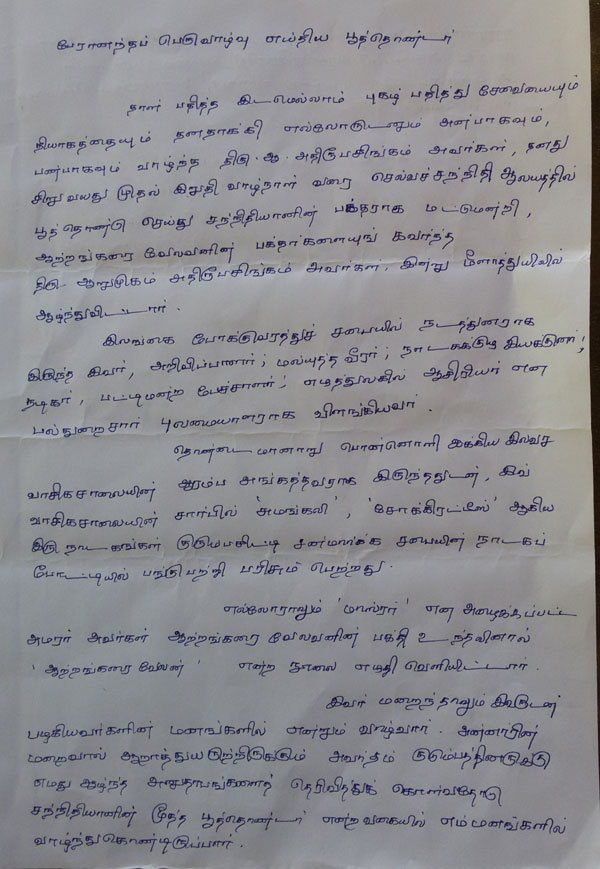 பேரானந்தப் பெருவாழ்வு எய்திய பூத்தொண்டர்
நாள் பதித்த இடமெல்லாம் புகழ் பதித்து சேவையையும்
தியாகத்தையும் தனதாக்கி எல்லோருடனும் அன்பாகவும்,
பண்பாகவும் வாழ்ந்த திரு.ஆ.அதிரூபசிங்கம் அவர்கள், தனது
சிறுவயது முதல் இறுதி வாழ்நாள் வரை செல்வச்சந்நிதி ஆலயத்தில்
பூத்தொண்டு செய்து சந்நிதியானின் பக்தராக மட்டுமன்றி,
ஆற்றங்கரை வேலவனின் பக்தர்களையுங் கவர்ந்த
திரு. ஆறுமுகம் அதிரூபசிங்கம் அவர்கள். இன்று மீளாத்துயிலில்
ஆழ்ந்துவிட்டார்.
இலங்கை போக்குவரத்துச் சபையில் நடத்துனராக
இருந்த இவர், அறிவிப்பாளர்; மல்யுத்த வீரர்; நாடகக்குழு இயக்குனர்;
நடிகர், பட்டிமன்ற பேச்சாளர்; எழுத்துலகில் ஆசிரியர் என
பல்துறைசார் புலமையாளராக விளங்கியவர்.
தொண்டைமானாறு பொன்னொளி இலவச
வாசிகசாலையின் ஆரம்ப அங்கத்தவராக இருந்ததுடன், இவ்
வாசிகசாலையின் சார்பில் 'அமங்கலி', 'சோக்கிரட்டீஸ்' ஆகிய
இரு நாடகங்கள் குடும்பசிட்டி சன்மார்க்க சபையின் நாடகப்
போட்டியில் பங்குபற்றி பரிசும் பெற்றது.
எல்லோராலும் 'மாஸ்ரர்' என அழைக்கப்பட்ட
அமரர் அவர்கள் ஆற்றங்கரை வேலவனின் பக்தி உந்தலினால்
'ஆற்றங்கரை வேலன்' என்ற நூலை எழுதி வெளியிட்டார்.
இவர் மறைந்தாலும் இவருடன்
படிகியவர்களின் மனங்களில் என்றும் வாழ்வார். அன்னாரின்
மறைவால் ஆறாத்துயருற்றிருக்கும் அவர்தம் குடும்பத்தினருக்கு
எமது ஆழ்ந்த அனுதாபங்களைத் தெரிவித்துக் கொள்வதோடு
சந்நிதியானின் மூத்த பூத்தொண்டர் என்ற வகையில் எம்மனங்களில்
வாழ்ந்துகொண்டிருப்பார்.